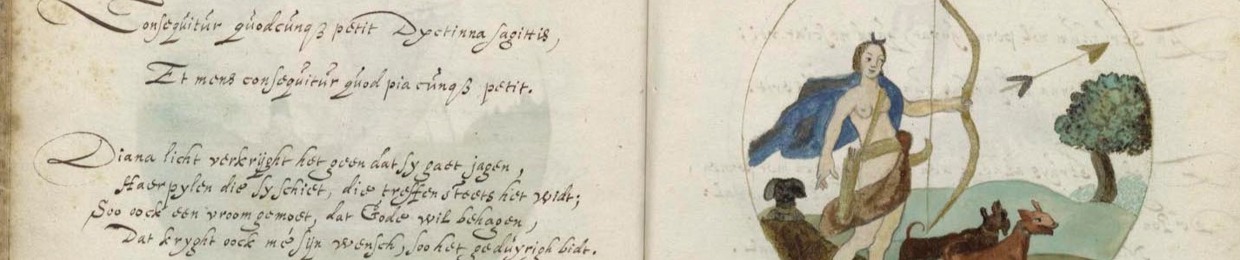 Consequitur quodcunqȝ petit Dyctinna sagittis,
Et mens consequitur quod pia cunqȝ petit.
Diana licht verkrijght het geen dat sy gaet jagen,
Haer pylen die sy schiet, die treffen steets het widt;
Soo oock een vroom gemoet, dat Gode wil behagen,
Dat kryght oock me sijn wensch, soo het geduyrigh bidt.